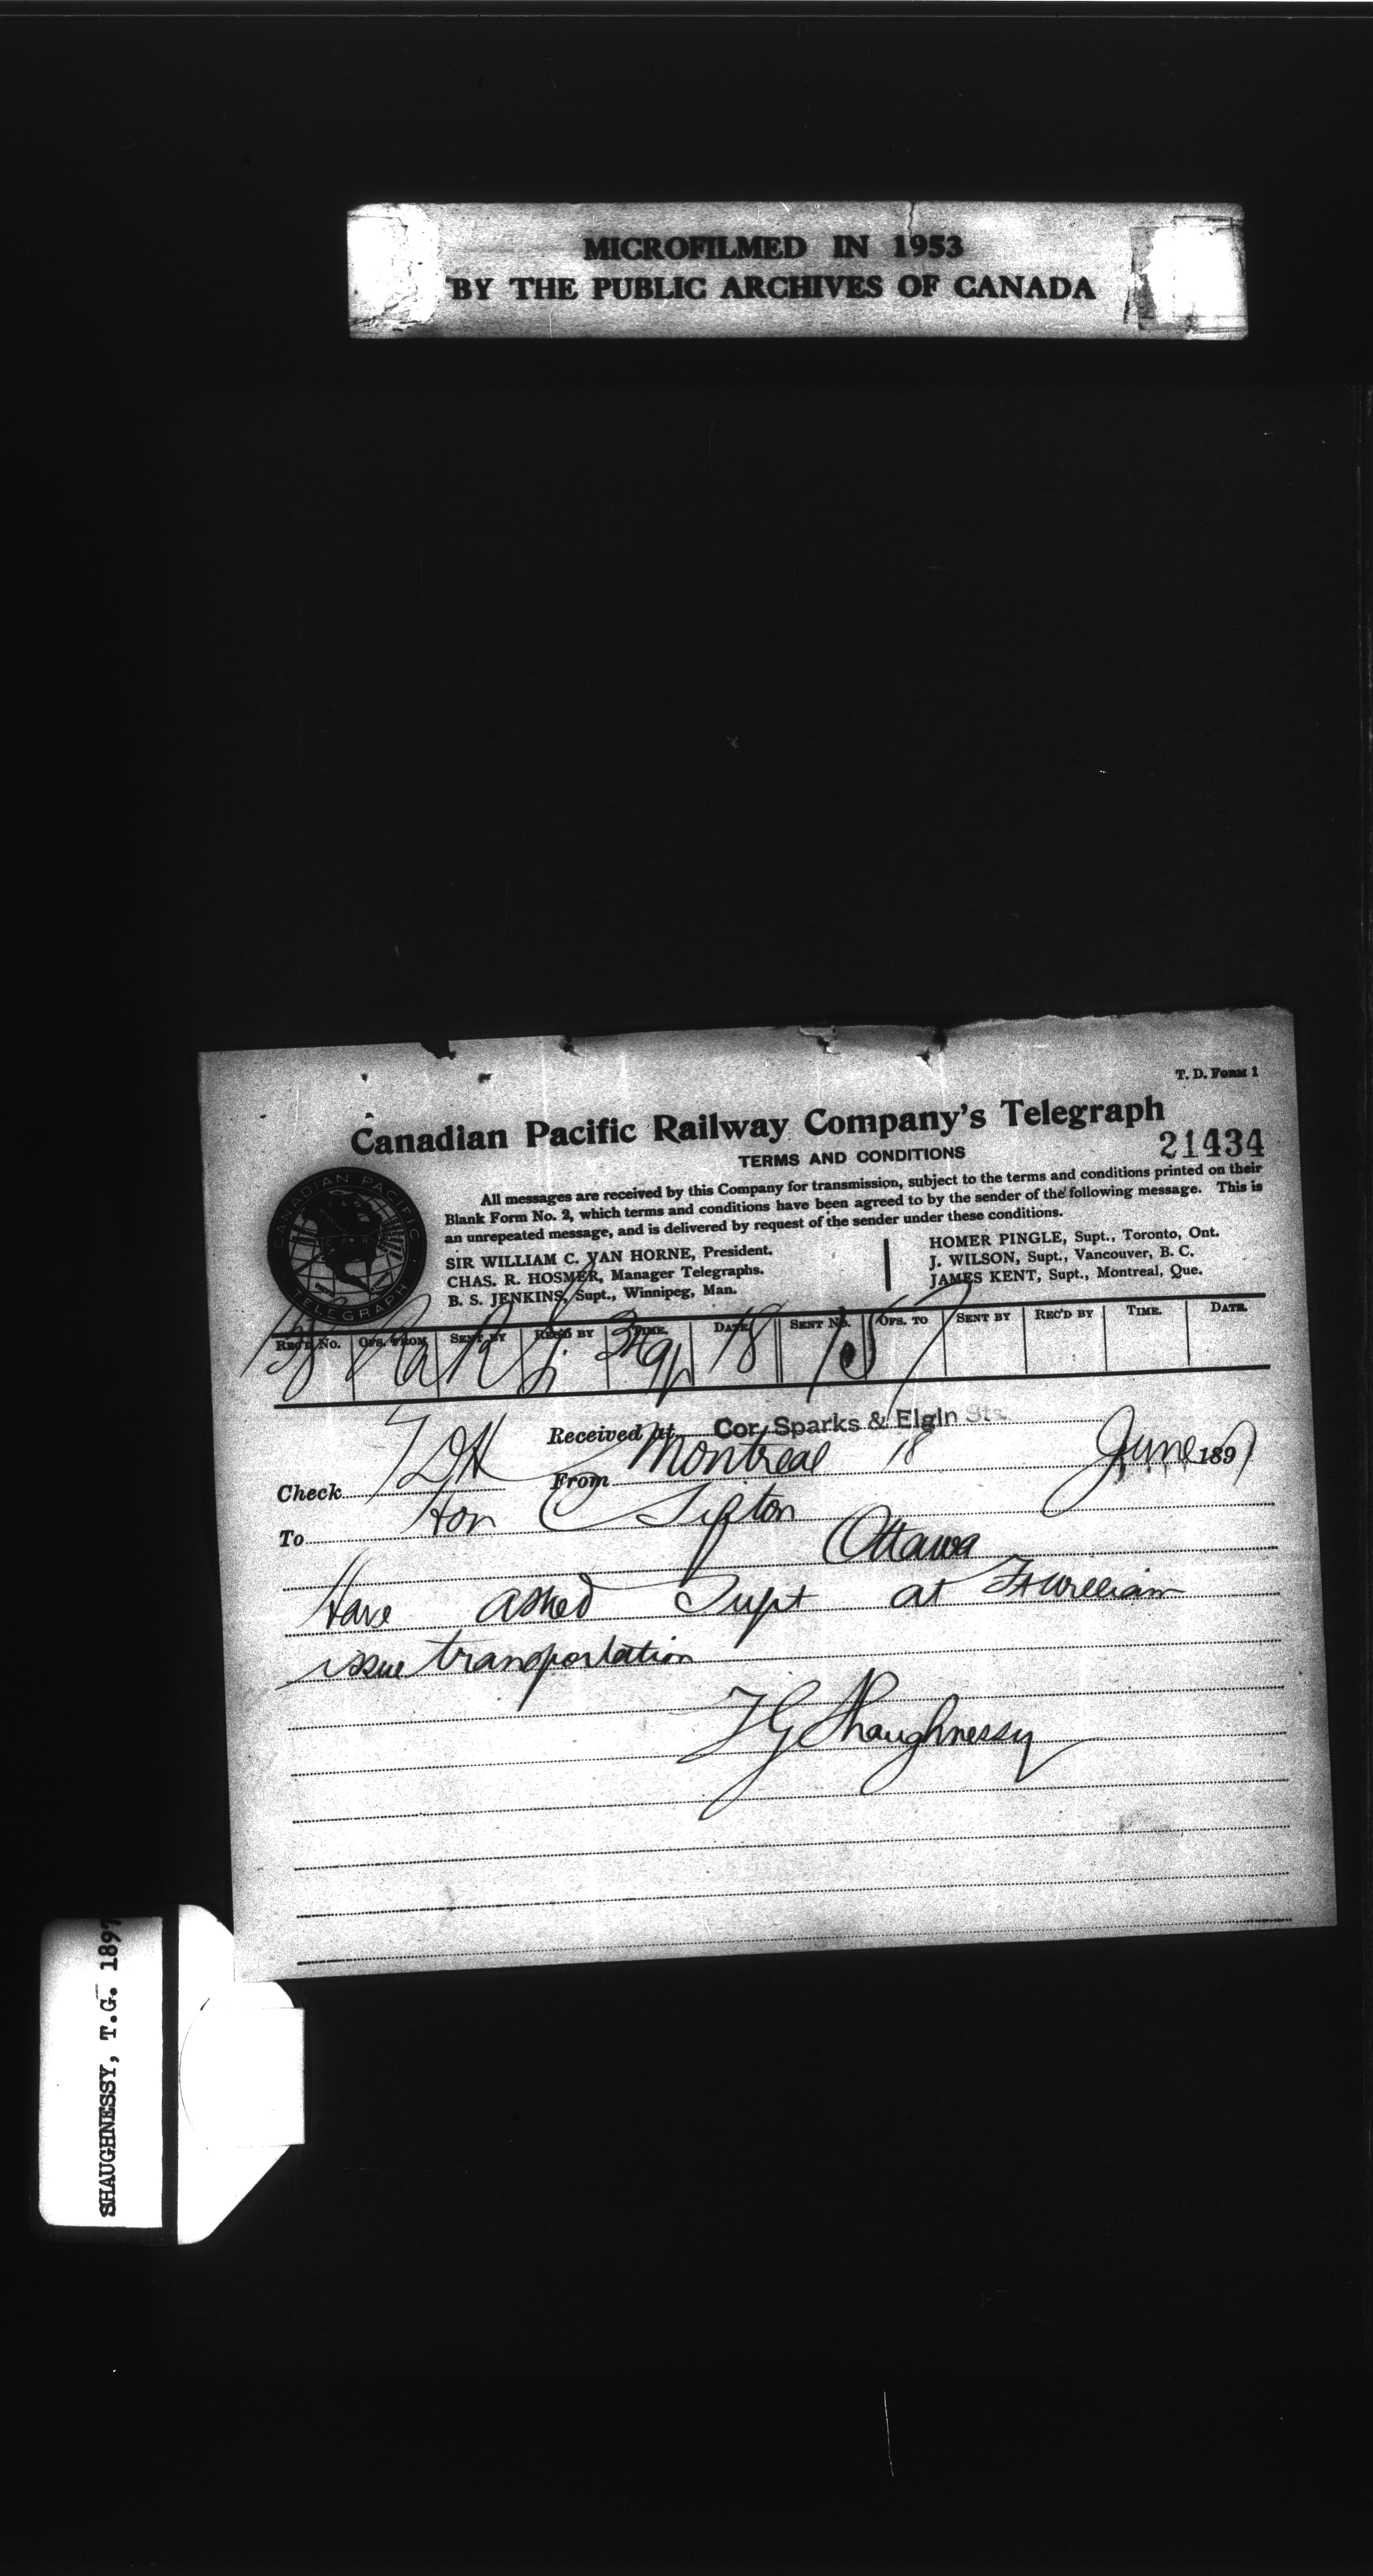 MICROFILMED IN 1953
BY THE PUBLIC ARCHIVES OF CANADA
T. D. Form 1
Canadian Pacific Railway Company's Telegraph
21434
TERMS AND CONDITIONS
CANADIAN PACIFIC
TELEGRAPH
All messages are received by this Company for transmission, subject to the terms and conditions printed on their
Blank Form No. 2, which terms and conditions have been agreed to by the sender of the following message. This is
an unrepeated message, and is delivered by request of the sender under these conditions.
SIR WILLIAM C. VAN HORNE, President.
CHAS. R. HOSMER, Manager Telegraphs.
B. S. JENKINS, Supt., Winnipeg, Man.
HOMER PINGLE, Supt., Toronto, Ont.
J. WILSON, Supt., Vancouver, B. C.
JAMES KENT, Supt., Montreal, Que.
Rec'd No. Ofs. from Sent by Rec'd by Time. Date Sent No. Ofs. to Sent by Rec'd by Time. Date.
18
Received at Cor. Sparks & Elgin Sts.
Check DH From Montreal 18 June 1897
To Hon C Sifton
Ottawa
Have asked Supt at Ft William
issue transportation
TG Shaughnessy
SHAUGHNESSY, T.G. 1897